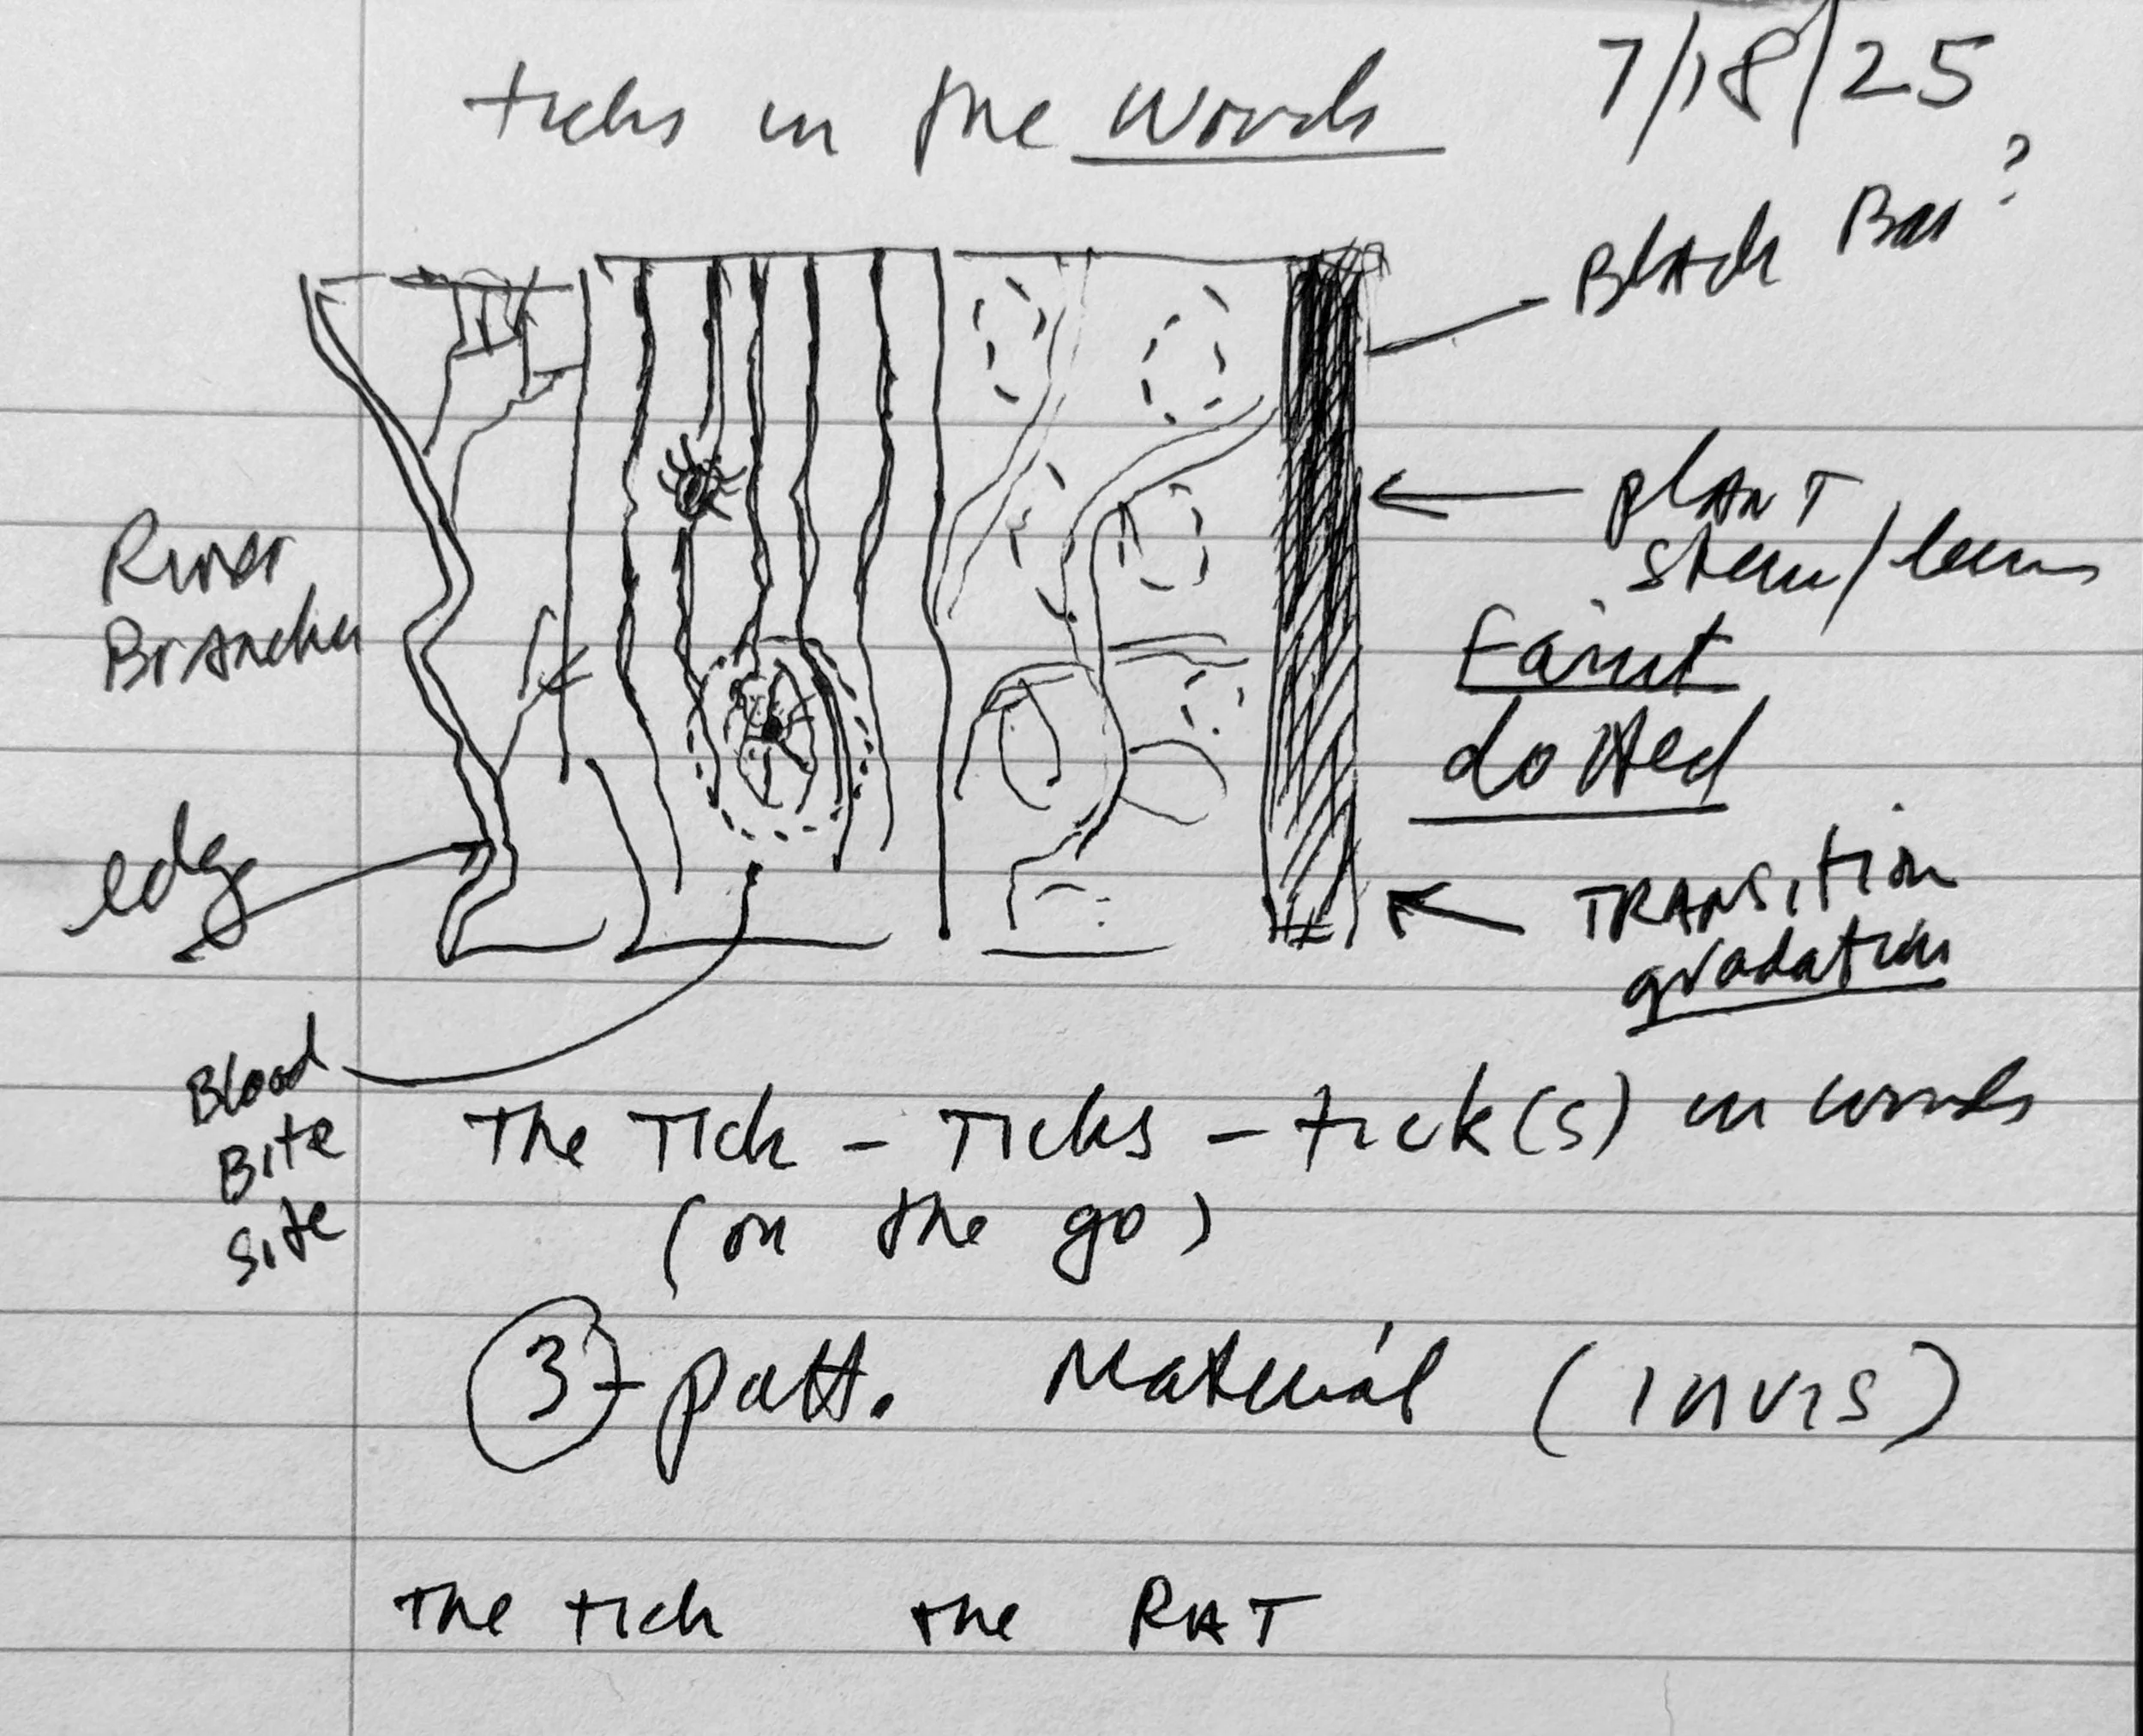 ticks in the woods
7/18/25
Black Bar?
River
Branches
plant
stem/
Faint
dotted
edge
TRANSition
gradation
Blood
Bite
site
The Tick - Ticks - tick(s) in woods
(on the go)
3 - patt. Material (INVIS)
The tick the RAT